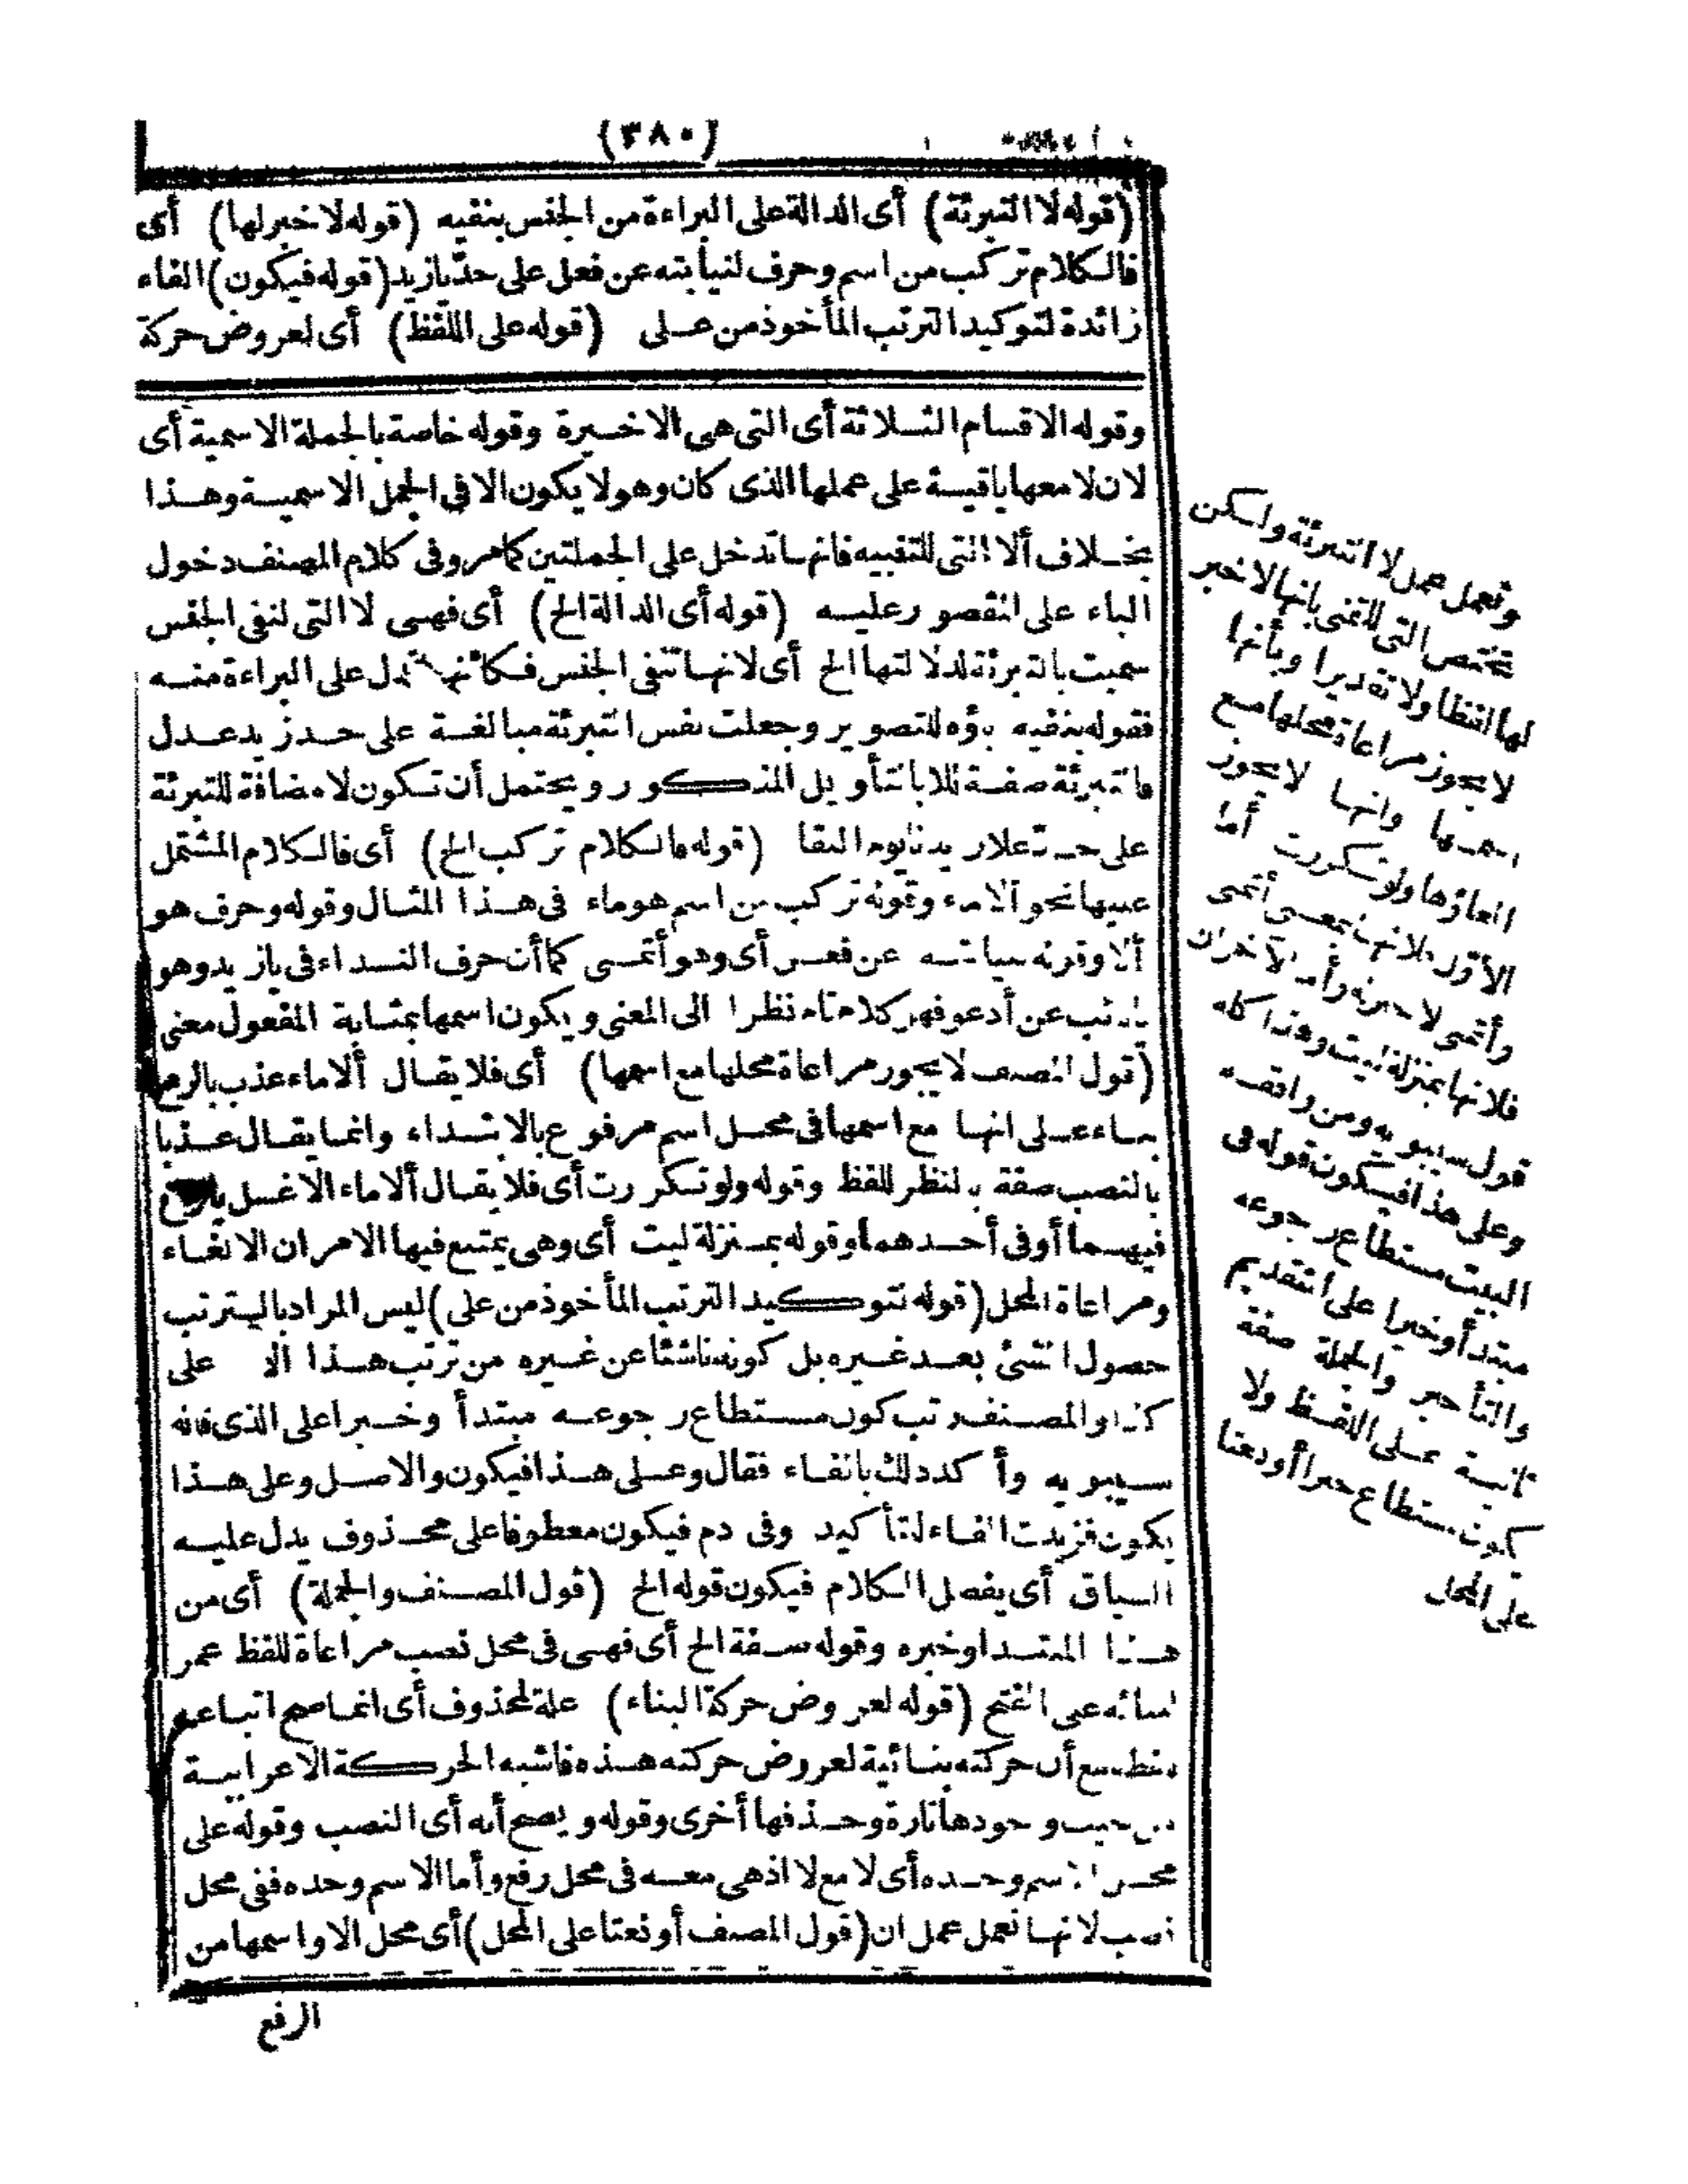 (٣٨٠)
(قوله لا التبرئة) أى الدالة على البراءة من الجنس بنفيه (قوله لا خبر لها) أى
فالكلام تركب من اسم وحرف لنيابته عن فعل على حدّ يا زيد (قوله فيكون) الفاء
زائدة لتوكيد الترتب المأخوذ من على (قوله على اللفظ) أى لعروض حركة
وقوله الاقسام الثلاثة أى التى هى الاخيرة وقوله خاصة بالجملة الاسمية أى
لان لا معها باقية على عملها الذى كان وهو لا يكون الا فى الجمل الاسمية وهذا
بخلاف ألا التى للتنبيه فانها تدخل على الجملتين كما مر وفى كلام المصنف دخول
الباء على المقصور عليه (قوله أى الدالة الخ) أى فهى لا التى لنفى الجنس
سميت بالتبرئة لدلالتها الخ أى لانها تنفى الجنس فكأنها تدل على البراءة منه
فقوله بنفيه باؤه للتصوير وجعلت نفس التبرئة مبالغة على حد زيد عدل
فالتبرئة صفة للا بالتأويل المذكور ويحتمل أن تكون لا مضافة للتبرئة
على حد علا زيدنا يوم النقا (قوله فالكلام تركب الخ) أى فالكلام المشتمل
عليها نحو ألا ماء وقوله تركب من اسم هو ماء فى هذا المثال وقوله وحرف هو
ألا وقوله لنيابته عن فعل أى وهو أتمنى كما أن حرف النداء فى يا زيد وهو
يا نائب عن أدعو فهو كلام تام نظرا الى المعنى ويكون اسمها بمثابة المفعول معنى
(قول المصنف لا يجوز مراعاة محلها مع اسمها) أى فلا يقال ألا ماء عذب بالرفع
بناء على انها مع اسمها فى محل اسم مرفوع بالابتداء وانما يقال عذبا
بالنصب صفة بالنظر للفظ وقوله ولو تكررت أى فلا يقال ألا ماء الا غسل بالرفع
فيهما أو فى أحدهما وقوله بمنزلة ليت أى وهى يمتنع فيها الامران الالغاء
ومراعاة المحل (قوله لتوكيد الترتب المأخوذ من على) ليس المراد بالترتب
حصول الشئ بعد غيره بل كونه ناشئا عن غيره من ترتب هذا الا على
كذا والمصنف رتب كون مستطاع رجوعه مبتدأ وخبرا على الذى قاله
سيبويه وأكد ذلك بالفاء فقال وعلى هذا فيكون والاصل وعلى هذا
يكون فزيدت الفاء لتأكيد وفى دم فيكون معطوفا على محذوف يدل عليه
السياق أى يفصل الكلام فيكون قوله الخ (قول المصنف والجملة) أى من
هذا المبتدا وخبره وقوله صفة الخ أى فهى فى محل نصب مراعاة للفظ عمر
لبنائه على الفتح (قوله لعروض حركة البناء) علة لمحذوف أى انما صح اتباعه
لفظا مع أن حركته بنائية لعروض حركته هذه فاشبه الحركة الاعرابية
من حيث وجودها تارة وحذفها أخرى وقوله ويصح أنه أى النصب وقوله على
محل الاسم وحده أى لا مع لا اذ هى معه فى محل رفع وأما الاسم وحده ففى محل
نصب لانها تعمل عمل ان (قول المصنف أو نعتا على المحل) أى محل الا واسمها من
الرفع
وتعمل عمل لا التبرئة ولكن
تختص التى للتمنى بانها لا خبر
لها لفظا ولا تقديرا وبأنها
لا يجوز مراعاة محلها مع
اسمها وانها لا يجوز
الغاؤها ولو تكررت أما
الأول فلانها بمعنى أتمنى
وأتمنى لا خبر له وأما الآخران
فلانها بمنزلة ليت وهذا كله
قول سيبويه ومن وافقه
وعلى هذا فيكون قوله فى
البيت مستطاع رجوعه
مبتدأ وخبرا على التقديم
والتأخير والجملة صفة
ثانية على اللفظ ولا
يكون مستطاع خبرا أو نعتا
على المحل